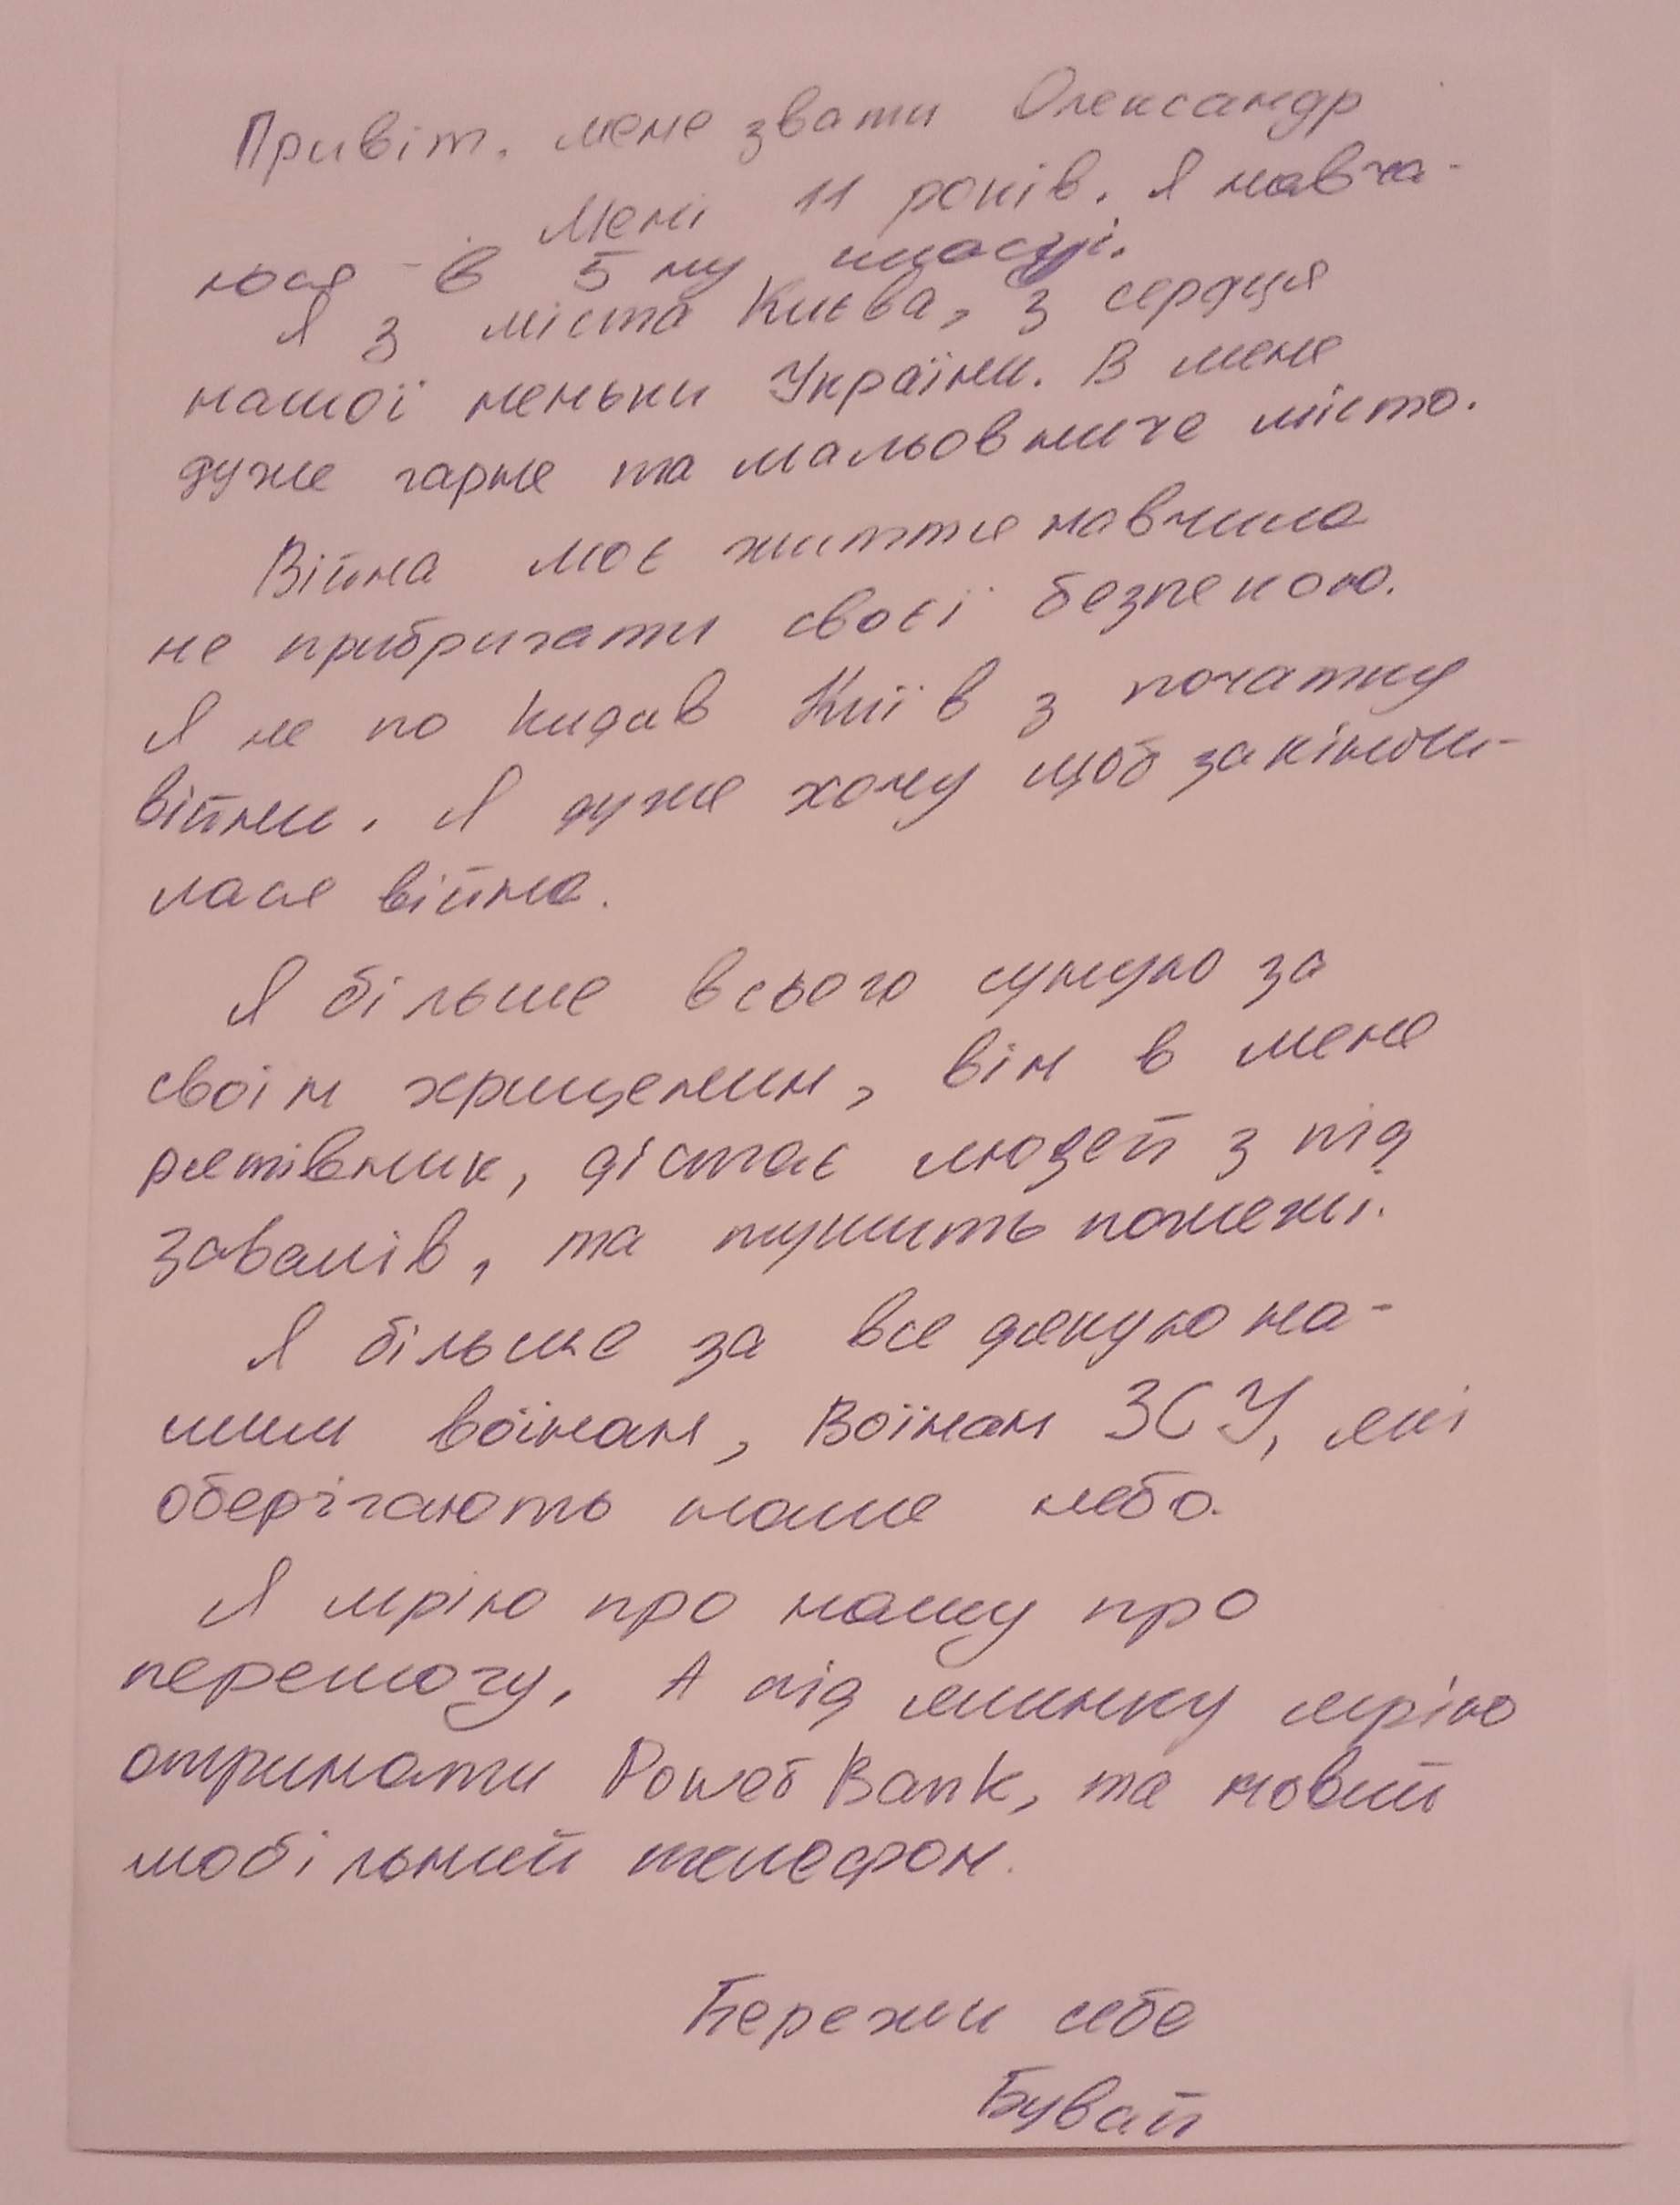 Привіт. мене звати Олександр
Мені 11 років. Я навча-
юся в 5 му класі.
Я з міста Києва, з серця
нашої неньки України. В мене
дуже гарне та мальовниче місто.
Війна моє життя навчила
не прибригати своєї безпекою.
Я не по кидав Київ з початку
війни. Я дуже хочу щоб закінчи-
лася війна.
Я більше всього сумую за
своїм хрищеним, він в мене
рятівник, дістає людей з під
завалів, та тушить пожежі.
Я більше за все дякую на-
шим воїнам, Воїнам ЗСУ, які
оберігають наше небо.
Я мрію про нашу про
перемогу. А під ялинку мрію
отримати Power Bank, та новий
мобільний телефон.
Бережи себе
Бувай